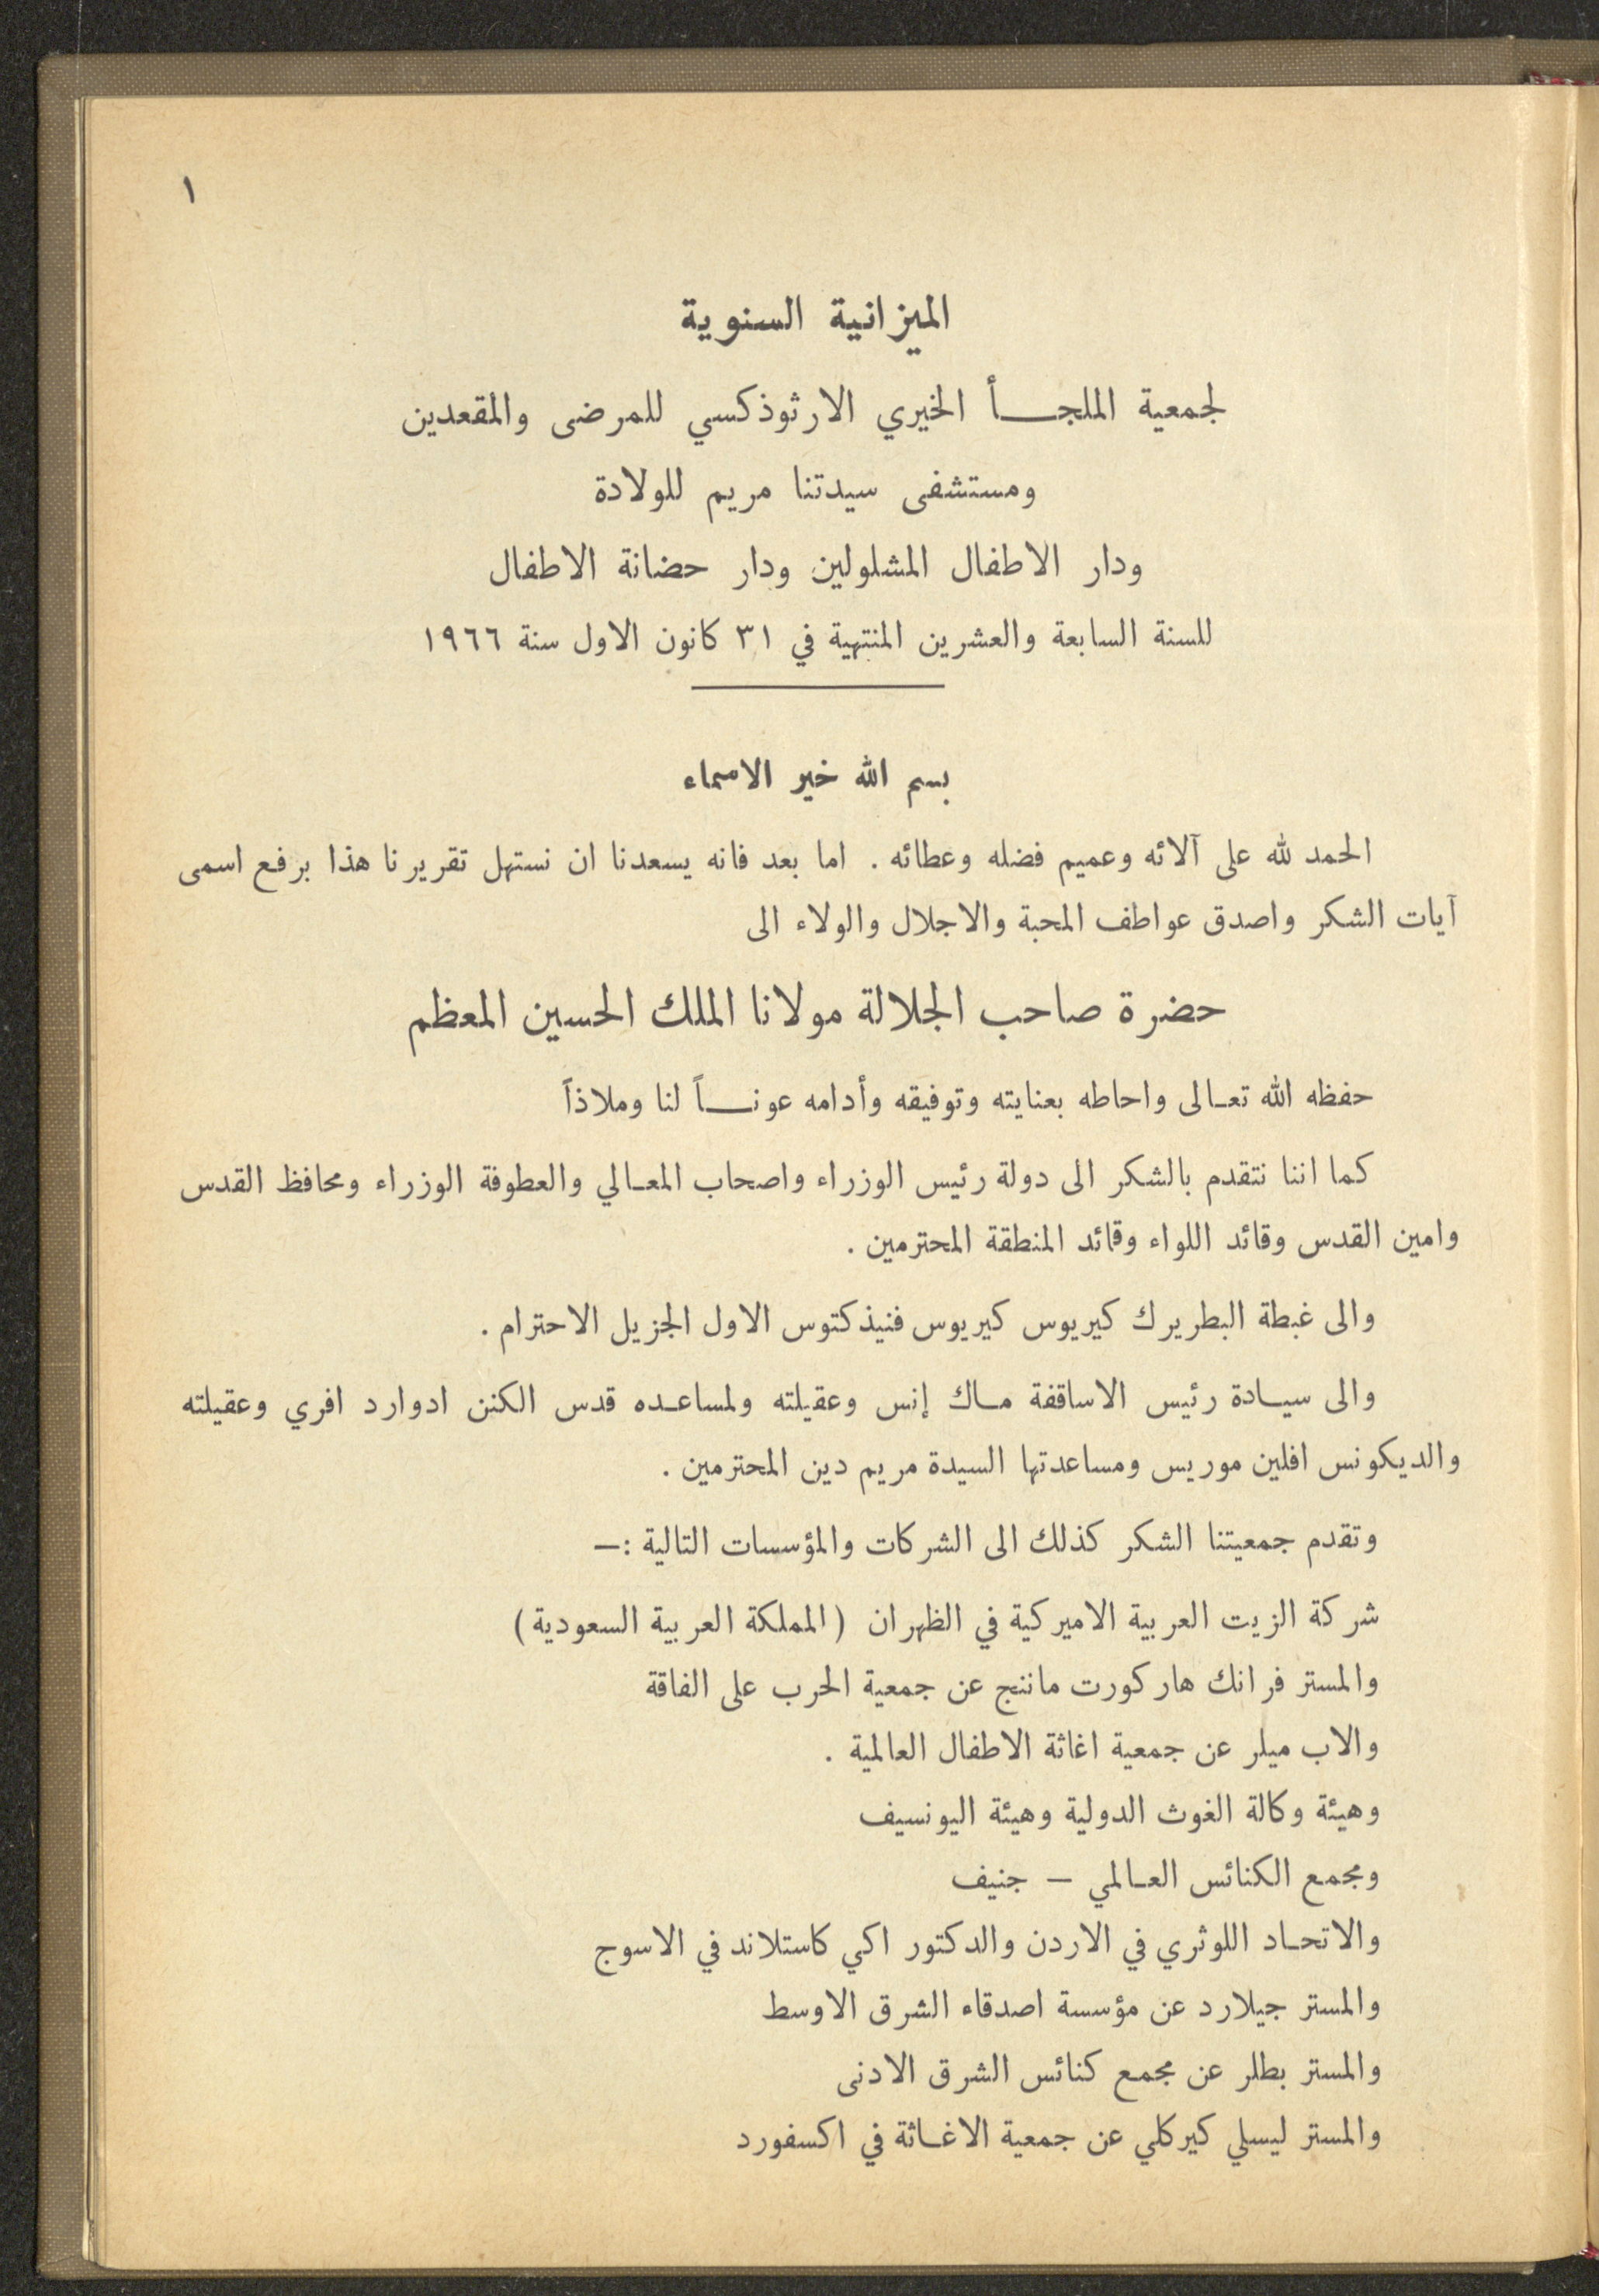 ١
الميزانية السنوية
لجمعية الملجأ الخيري الارثوذكسي للمرضى والمقعدين
ومستشفى سيدتنا مريم للولادة
ودار الاطفال المشلولين ودار حضانة الاطفال
للسنة السابعة والعشرين المنتهية في ٣١ كانون الاول سنة ١٩٦٦
بسم الله خير الاسماء
الحمد لله على آلائه وعميم فضله وعطائه . اما بعد فانه يسعدنا ان نستهل تقريرنا هذا برفع اسمى
آيات الشكر واصدق عواطف المحبة والاجلال والولاء الى
حضرة صاحب الجلالة مولانا الملك الحسين المعظم
حفظه الله تعالى واحاطه بعنايته وتوفيقه وأدامه عوناً لنا وملاذاً
كما اننا نتقدم بالشكر الى دولة رئيس الوزراء واصحاب المعالي والعطوفة الوزراء ومحافظ القدس
وامين القدس وقائد اللواء وقائد المنطقة المحترمين .
والى غبطة البطريرك كيريوس كيريوس فنيذكتوس الاول الجزيل الاحترام .
والى سيادة رئيس الاساقفة ماك إنس وعقيلته ولمساعده قدس الكنن ادوارد افري وعقيلته
والديكونس افلين موريس ومساعدتها السيدة مريم دين المحترمين .
وتقدم جمعيتنا الشكر كذلك الى الشركات والمؤسسات التالية :—
شركة الزيت العربية الاميركية في الظهران (المملكة العربية السعودية)
والمستر فرانك هاركورت ماننج عن جمعية الحرب على الفاقة
والاب ميلر عن جمعية اغاثة الاطفال العالمية .
وهيئة وكالة الغوث الدولية وهيئة اليونسيف
ومجمع الكنائس العالمي — جنيف
والاتحاد اللوثري في الاردن والدكتور اكي كاستلاند في الاسوج
والمستر جيلارد عن مؤسسة اصدقاء الشرق الاوسط
والمستر بطلر عن مجمع كنائس الشرق الادنى
والمستر ليسلي كيركلي عن جمعية الاغاثة في اكسفورد